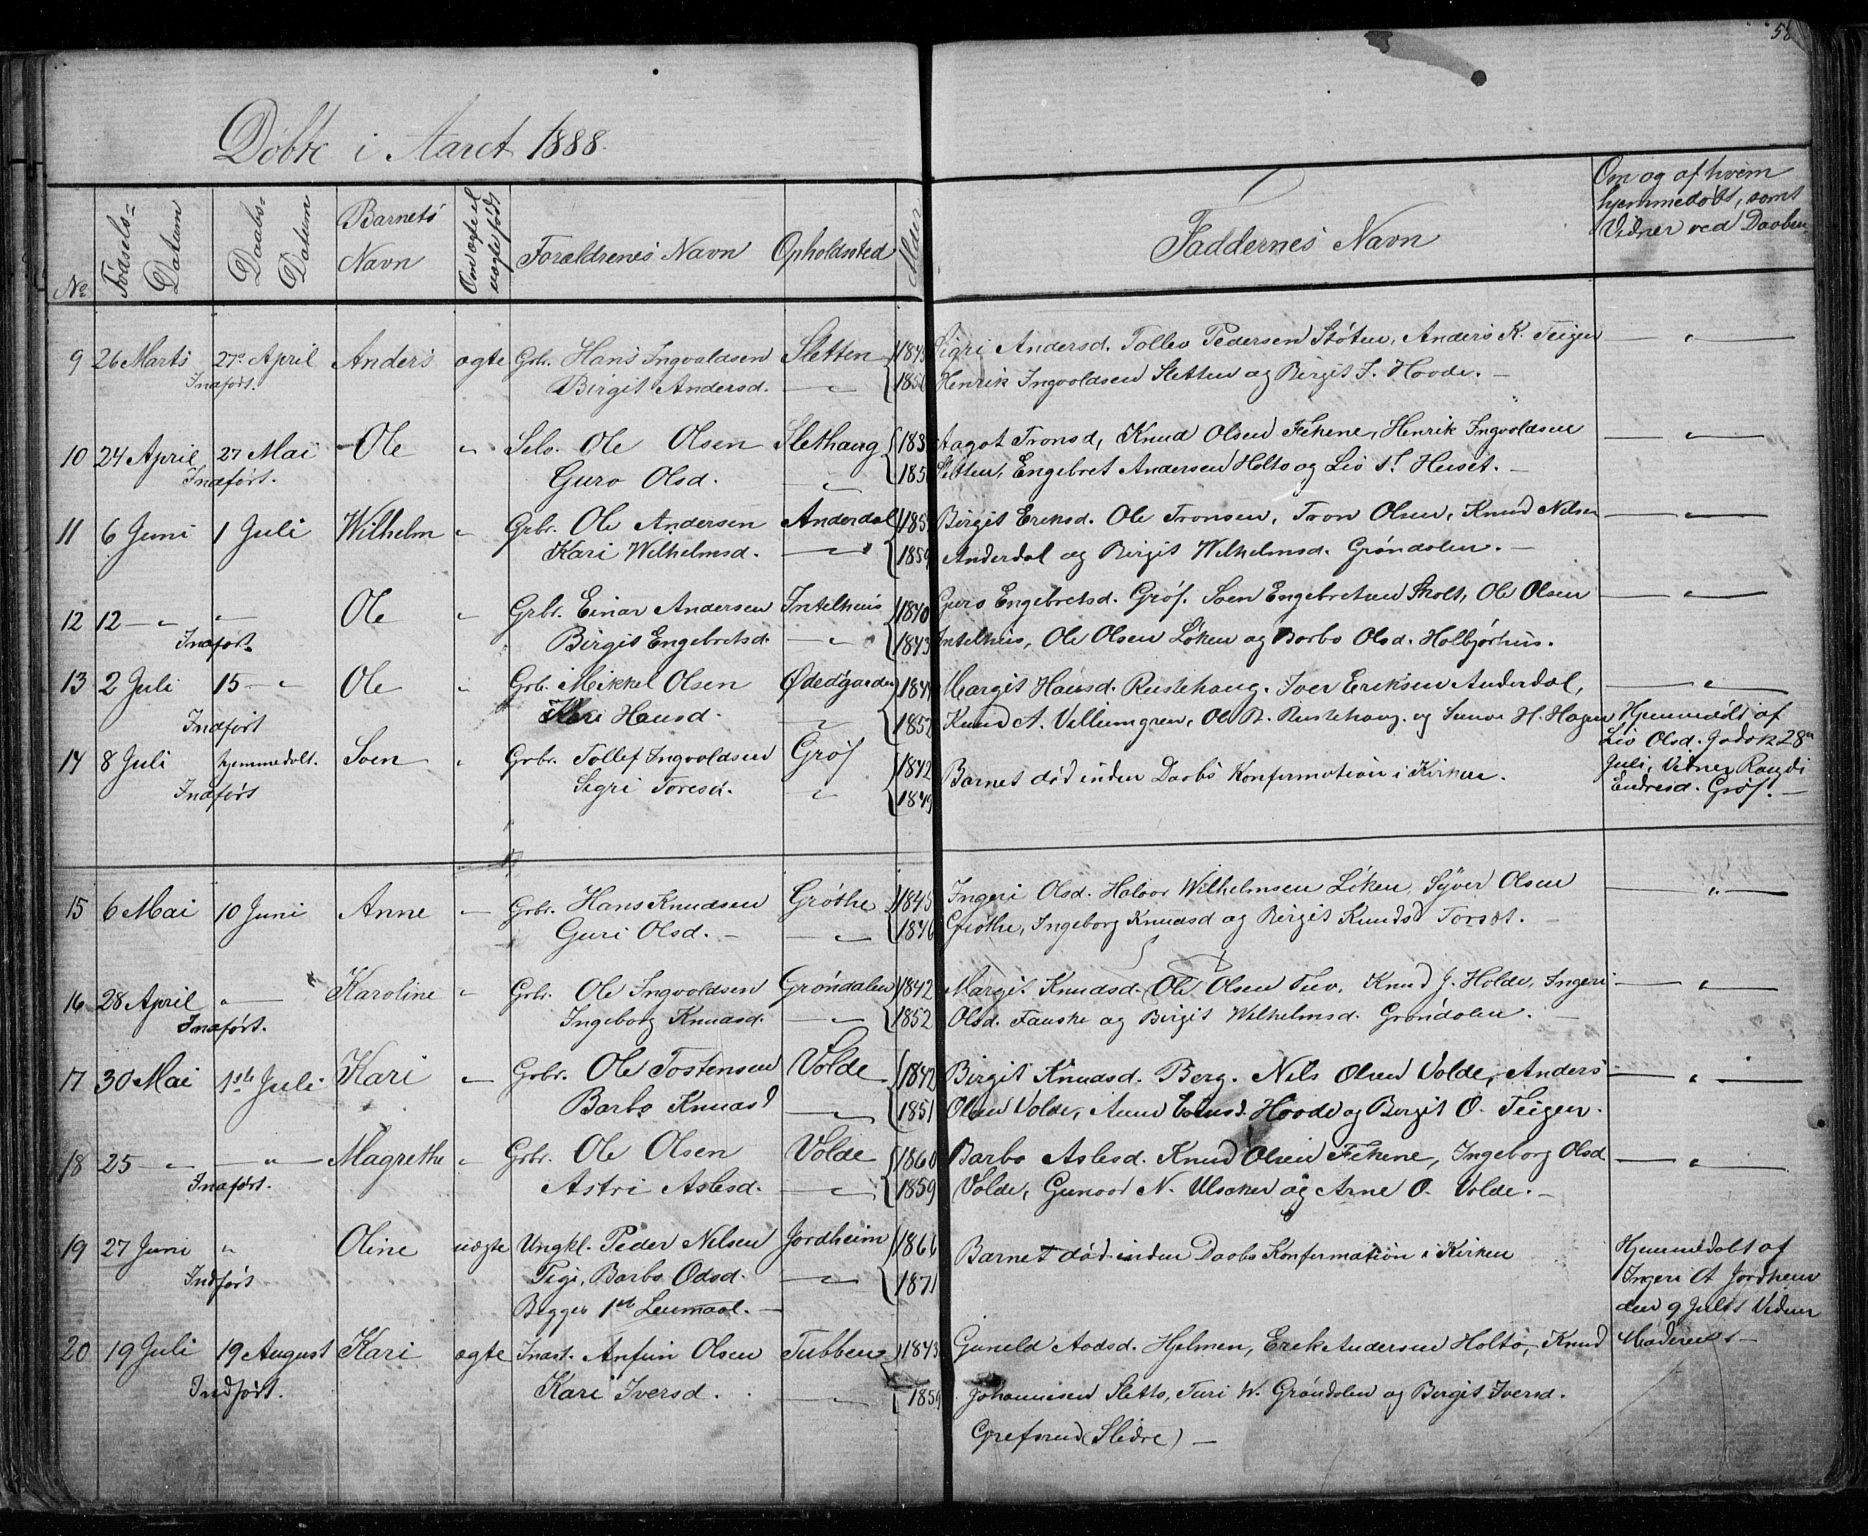 Døbte i Aaret 1888.
No
Fødsels= Datum
Daabs= Datum
Barnets Navn
Om ægte el uægte født
Forældrenes Navn
Opholdssted
Alder
Faddernes Navn
Om og af hvem hjemmedøbt, samt Vidner ved Daaben
9 26 Marts 27de April Anders ægte Grbr. Hans Ingvoldsen Sletten 1843 Sigri Andersd. Tollev Pedersen Støten, Anders K. Teigen — " —
Indført. Birgit Andersd. — " — Henrik Ingvoldsen Sletten og Birgit I. Hoode. —
10 24 April 27 Mai Ole " Selv. Ole Olsen Slethaug Aagot Tronsd, Knud Olsen Fekene, Henrik Ingvoldsen — " —
Indført. Guro Olsd. — " — Sletten, Engebret Andersen Holto og Liv Huset. —
11 6 Juni 1 Juli Wilhelm " Grbr. Ole Andersen Anderdal Birgit Eriksd. Ole Tronsen, Tron Olsen, Knud Nilsen — " —
Kari Wilhelmsd. — " — 1859 Anderdal og Birgit Wilhelmsd. Grøndalen. —
12 12 — " — — " — Ole " Grbr. Einar Andersen Intelhus 1840 Guro Engebretsd. Grøf. Sven Engebretsen Skolt, Ole Olsen — " —
Indført. Birgit Engebretsd. — " — 1843 Intelhus, Ole Olsen Løken og Barbo Olsd. Halbjørhus.
13 2 Juli 15 — " Ole " Grbr. Mikkel Olsen Ødegaarden Margit Hansd. Rustehaug. Iver Eriksen Anderdal, — " —
Indført Kari Hansd. — " — 1852 Knud A. Villumgren, Ole R. Rustehaug. og H. Hagen
14 8 Juli hjemmedøbt. Sven " Grbr. Tollef Ingvoldsen Grøf 1842 Barnet død inden Daabs Konfermation i Kirken. Hjemmedøbt af
Indført Sigri Toresd. " 1849 Liv Olsd. 28de
Juli, Vidner Randi
Endresd. Grøf. —
15 6 Mai 10 Juni Anne — Grbr. Hans Knudsen Grøthe 1845 Ingeri Olsd. Halvor Wilhelmsen Løken, Syver Olsen — " —
Guri Olsd. — — " — 1846 Grøthe, Ingeborg Knudsd og Birgit Knudsd Torset. —
16 28 April " — Karoline " Grbr. Ole Ingvoldsen Grøndalen 1842 Margit Knudsd. Ole Olsen Tuv, Knud J. Holde, Ingeri — " —
Indført. Ingeborg Knudsd. — " — 1852 Olsd. Fauske og Birgit Wilhelmsd. Grøndalen. —
17 30 Mai 1ste Juli Kari — Grbr. Ole Tostensen Volde 1842 Birgit Knudsd. Berg. Nils Olsen Volde, Anders — " —
Barbo Knudsd — " — 1851 Olsen Volde, Hoode og Birgit O. Teigen.
18 25 — " — — " — Magrethe " Grbr. Ole Olsen Volde 1860 Barbo Aslesd. Knud Olsen Fekene, Ingeborg Olsd — " —
Indført. Astri Aslesd. — " — 1859 Volde, Gunvor N. Ulsaker og Arne O. Volde. —
19 27 Juni " Oline uægte Ungkl. Peder Nilsen Jordheim Barnet død inden Daabs Konfermation i Kirken Hjemmedøbt af
Indført Pige, Barbo Odsd. — " — 1871 Ingeri A Jordheim
Begges 1ste Leiermaal. — den 9 Juli Vidner
20 19 Juli 19 August Kari ægte Indst. Anfin Olsen Tubben 1843 Gunild Aodsd. Hjelmen, Erik Andersen Holto, Knud Moderen —
Indført. Kari Iversd. — " — 1859 Johannesen Sletto, Turi W. Grøndalen og Birgit Iversd.
Grefsrud (Slidre) —